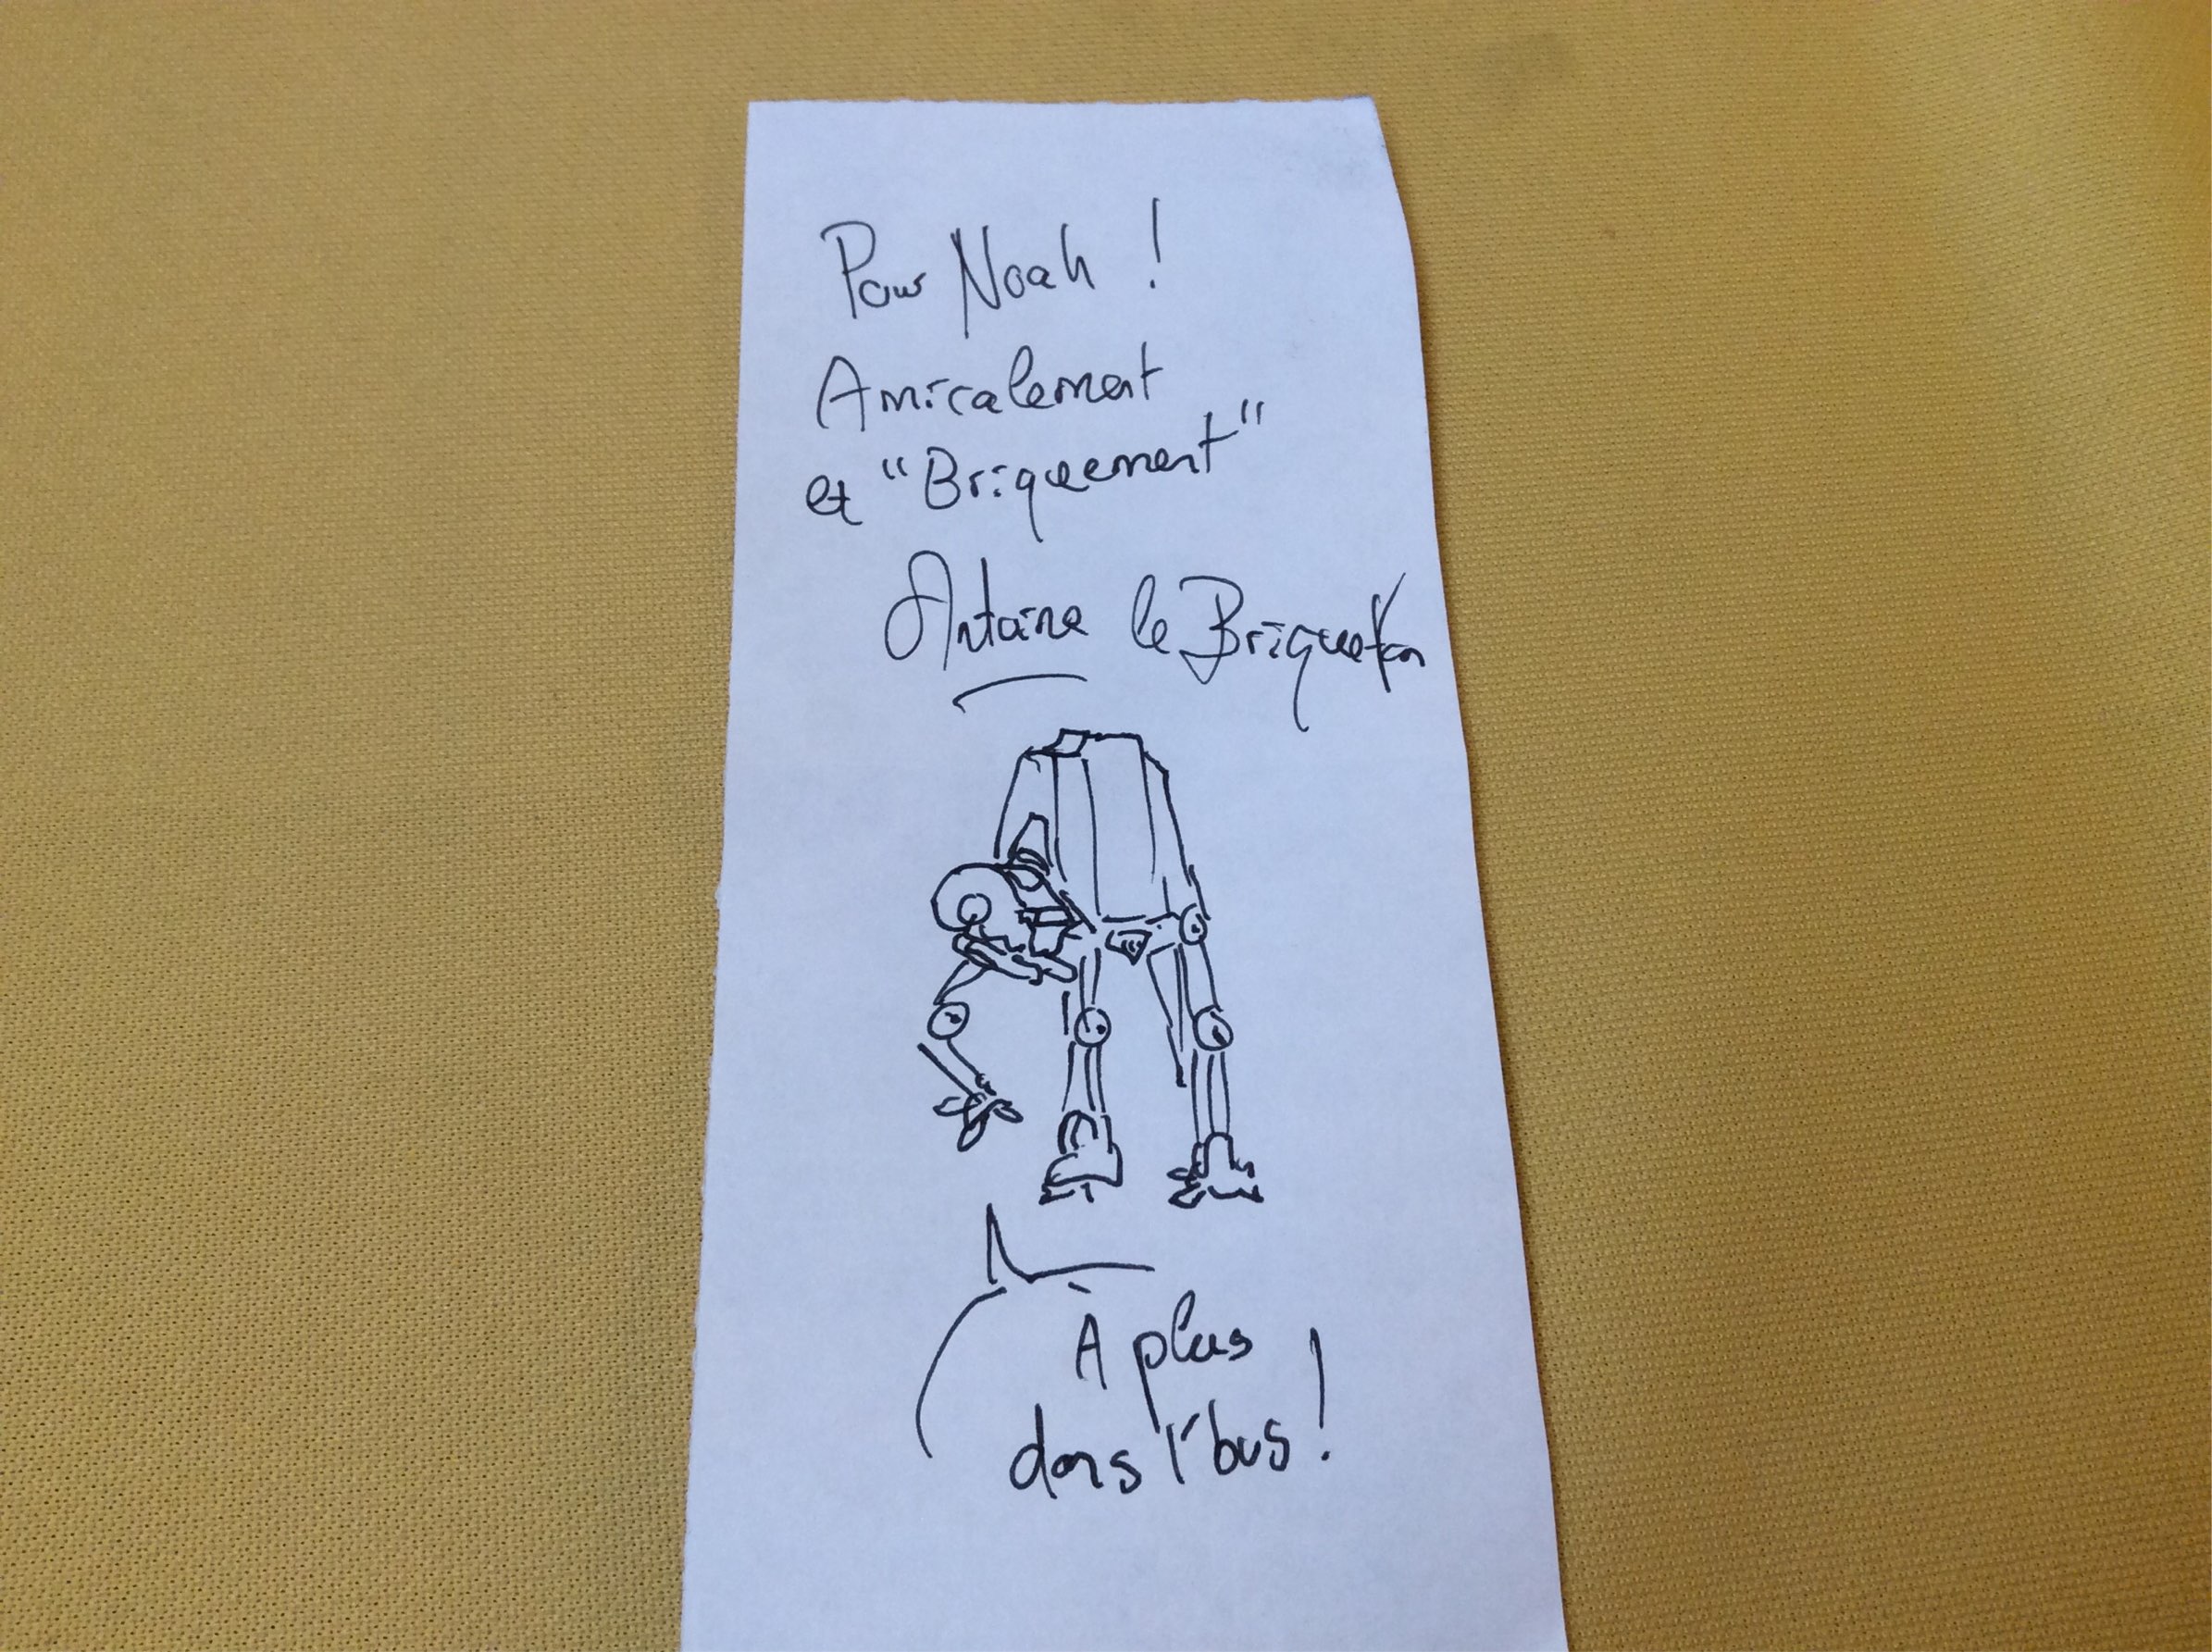 Pour Noah !
Amicalement
et "Briquement"
Antoine le Briqueton
À plus
dans l'bus !